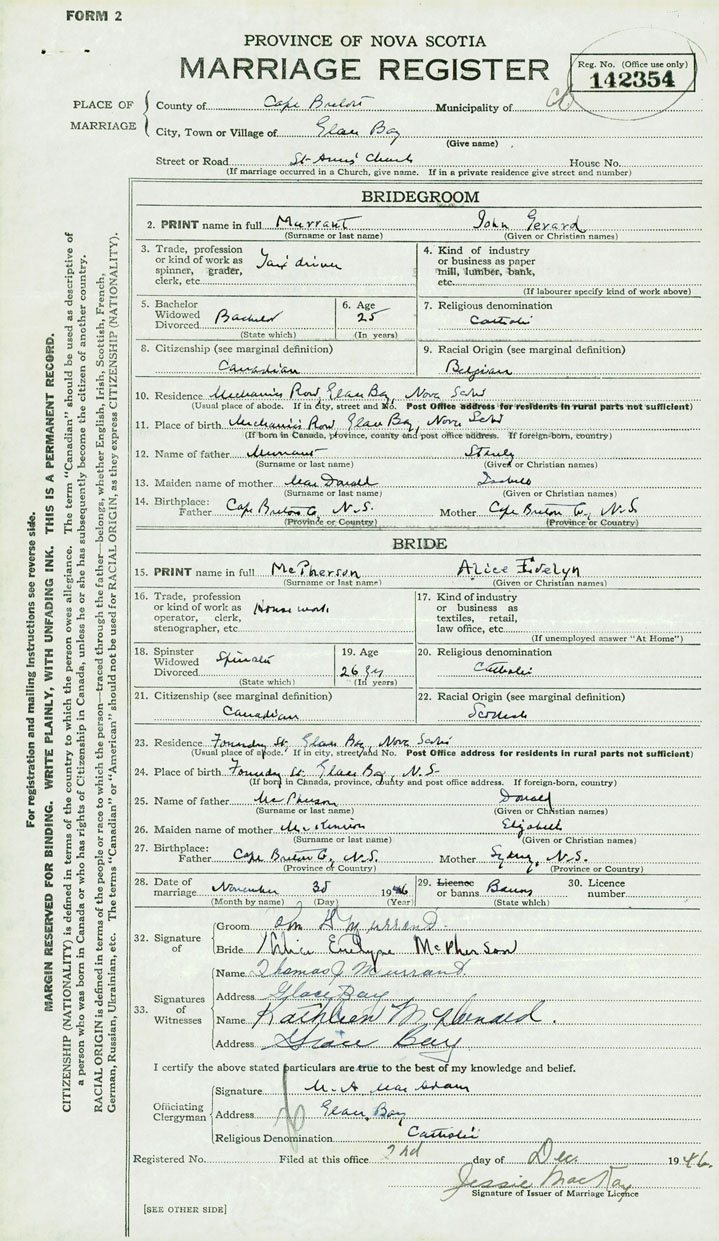 FORM 2
PROVINCE OF NOVA SCOTIA
MARRIAGE REGISTER
Reg. No. (Office use only)
142354
PLACE OF MARRIAGE
County of Cape Breton Municipality of
City, Town or Village of Glace Bay
(Give name)
Street or Road St Anns' Church House No.
(If marriage occurred in a Church, give name. If in a private residence give street and number)
BRIDEGROOM
2. PRINT name in full Murrant John Gerard
(Surname or last name) (Given or Christian names)
3. Trade, profession or kind of work as spinner, grader, clerk, etc. Taxi driver
4. Kind of industry or business as paper mill, lumber, bank, etc.
(If labourer specify kind of work above)
5. Bachelor Widowed Divorced Bachelor
(State which)
6. Age 25
(In years)
7. Religious denomination
Catholic
8. Citizenship (see marginal definition)
Canadian
9. Racial Origin (see marginal definition)
Belgian
10. Residence Mechanics Row, Glace Bay, Nova Scotia
(Usual place of abode. If in city, street and No. Post Office address for residents in rural parts not sufficient)
11. Place of birth Mechanics Row, Glace Bay, Nova Scotia
(If born in Canada, province, county and post office address. If foreign-born, country)
12. Name of father Murrant Stanly
(Surname or last name) (Given or Christian names)
13. Maiden name of mother MacDonald
(Surname or last name) (Given or Christian names)
14. Birthplace: Father Cape Breton Co, N.S. Mother Cape Breton Co, N.S.
(Province or Country) (Province or Country)
BRIDE
15. PRINT name in full McPherson Alice Evelyn
(Surname or last name) (Given or Christian names)
16. Trade, profession or kind of work as operator, clerk, stenographer, etc House work
17. Kind of industry or business as textiles, retail, law office, etc.
(If unemployed answer "At Home")
18. Spinster Widowed Divorced Spinster
(State which)
19. Age
26
(In years)
20. Religious denomination
Catholic
21. Citizenship (see marginal definition)
Canadian
22. Racial Origin (see marginal definition)
Scottish
23. Residence Foundry St. Glace Bay, Nova Scotia
(Usual place of abode. If in city, street and No. Post Office address for residents in rural parts not sufficient)
24. Place of birth Foundry St. Glace Bay, N.S.
(If born in Canada, province, county and post office address. If foreign-born, country)
25. Name of father McPherson Donald
(Surname or last name) (Given or Christian names)
26. Maiden name of mother McKinnon Elizabeth
(Surname or last name) (Given or Christian names)
27. Birthplace: Father Cape Breton Co, N.S. Mother Sydney, N.S.
(Province or Country) (Province or Country)
28. Date of marriage November 30 1946
(Month by name) (Day) (Year)
29. Licence or banns Banns
(State which)
30. Licence number
32. Signature of
Groom John G Murrant.
Bride Alice Evelyne McPherson
33. Signatures of Witnesses
Name Thomas J Murrant.
Address Glace Bay
Name Kathleen
Address Glace Bay
I certify the above stated particulars are true to the best of my knowledge and belief.
Officiating Clergyman
Signature M. A. MacAdam
Address Glace Bay
Religious Denomination Catholic
Registered No. Filed at this office 2nd day of Dec. 1946.
Jessie MacKay
Signature of Issuer of Marriage Licence
[SEE OTHER SIDE]
For registration and mailing instructions see reverse side.
MARGIN RESERVED FOR BINDING. WRITE PLAINLY, WITH UNFADING INK. THIS IS A PERMANENT RECORD.
CITIZENSHIP (NATIONALITY) is defined in terms of the country to which the person owes allegiance. The term "Canadian" should be used as descriptive of
a person who was born in Canada or who has rights of Citizenship in Canada, unless he or she has subsequently become the citizen of another country.
RACIAL ORIGIN is defined in terms of the people or race to which the person—traced through the father—belongs, whether English, Irish, Scottish, French,
German, Russian, Ukrainian, etc. The terms "Canadian" or "American" should not be used for RACIAL ORIGIN, as they express CITIZENSHIP (NATIONALITY).